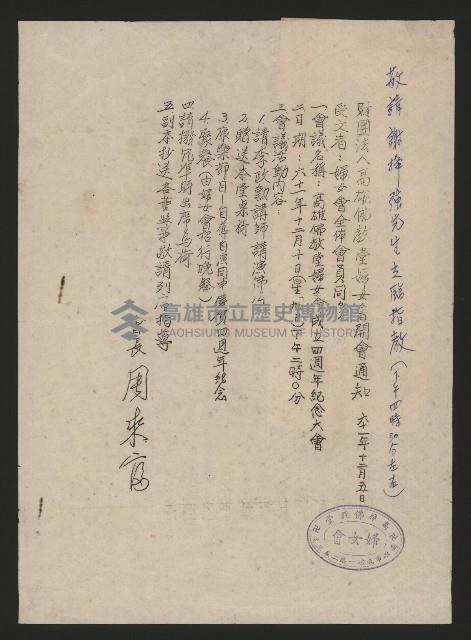 敬請謝掙強先生立臨指教(下午四時30分左右)
財團法人高雄佛教堂婦女會開會通知 六十一年十二月五日
受文者:婦女會全体會員同
一會議名稱:高雄佛教堂婦女會成立四週年紀念大會
二日期:六十一年十二月十日(星 )下午二時〇分
三會議活動內容:
1.請李政勳講師講演佛
2.贈送本堂桌椅
3.康樂節目 四週年紀念
4.聚餐(由婦女會招待晚餐)
四請撥冗準時出席為荷
五副本抄送各董監事敬請列席指導
會長 周來富
高雄佛教堂
婦女會
高雄市立歷史博物館
KAOHSIUNG MUSEUM OF HISTORY